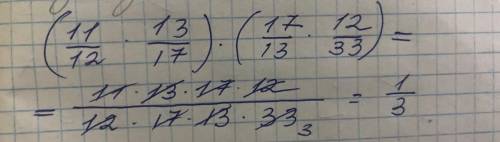 (11/12 · 13/17) · (17/13 · 12/33) =
= 11 · 13 · 17 · 12 / 12 · 17 · 13 · 33 3 = 1/3